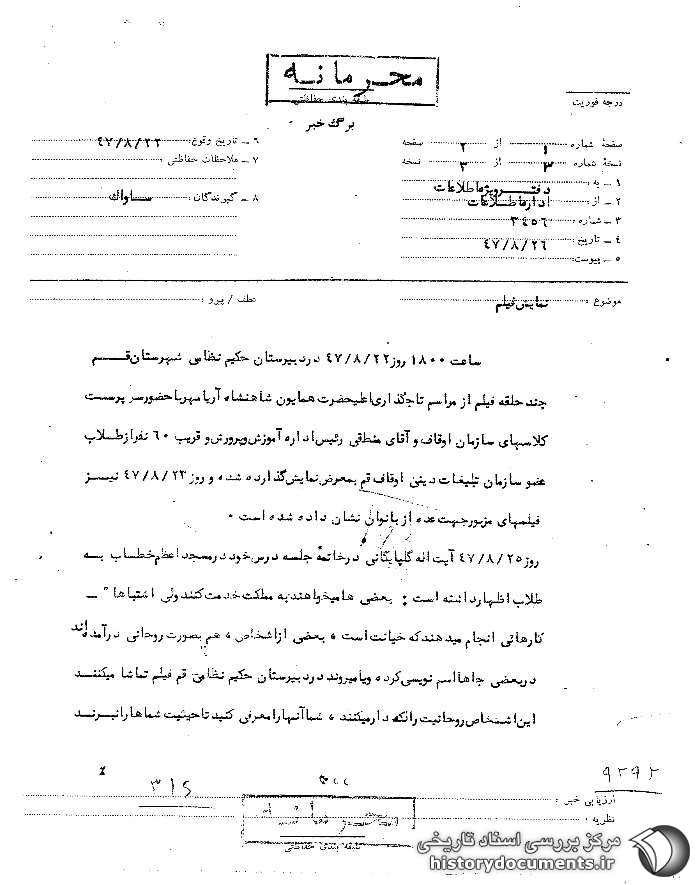 محرمانه
طبقه بندی حفاظتی
درجه فوریت
برگ خبر
صفحهٔ شماره ۱ از ۲ صفحه
نسخهٔ شماره ۳ از ۳ نسخه
۱ ـ به : دفترویژه اطلاعات
۲ ـ از : اداره اطلاعات
۳ ـ شماره : ۳۴۵۶
۴ ـ تاریخ : ۴۷/۸/۲۶
۵ ـ پیوست:
۶ ـ تاریخ وقوع: ۴۷/۸/۲۲
۷ ـ ملاحظات حفاظتی :
۸ ـ گیرندگان : ساواک
موضوع : نمایش فیلم
عطف / پیرو :
ساعت ۱۸۰۰ روز ۴۷/۸/۲۲ در دبیرستان حکیم نظامی شهرستان قم
چند حلقه فیلم از مراسم تاجگذاری اعلیحضرت همایون شاهنشاه آریامهر با حضور سرپرست
کلاسهای سازمان اوقاف و آقای منطقی رئیس اداره آموزش و پرورش و قریب ۶۰ نفر از طلاب
عضو سازمان تبلیغات دینی اوقاف قم بمعرض نمایش گذارده شده و روز ۴۷/۸/۲۳ نیز
فیلمهای مزبور جهت عده از بانوان نشان داده شده است ۰
روز ۴۷/۸/۲۵ آیت اله گلپایگانی در خاتمهٔ جلسه درس خود در مسجد اعظم خطاب به
طلاب اظهار داشته است : بعضی ها میخواهند به مملکت خدمت کنند ولی اشتباها" ـ
کارهائی انجام میدهند که خیانت است ، بعضی از اشخاص ، هم بصورت روحانی درآمده اند
در بعضی جاها اسم نویسی کرده و یا میروند در دبیرستان حکیم نظامی قم فیلم تماشا میکنند
این اشخاص روحانیت را لکه دار میکنند ، شما آنها را معرفی کنید تا حیثیت شماها را نبرند
۹۲۹۲
۳۱۵
ارزیابی خبر :
نظریه :
محرمانه
طبقه بندی حفاظتی
مرکز بررسی اسناد تاریخی
historydocuments.ir